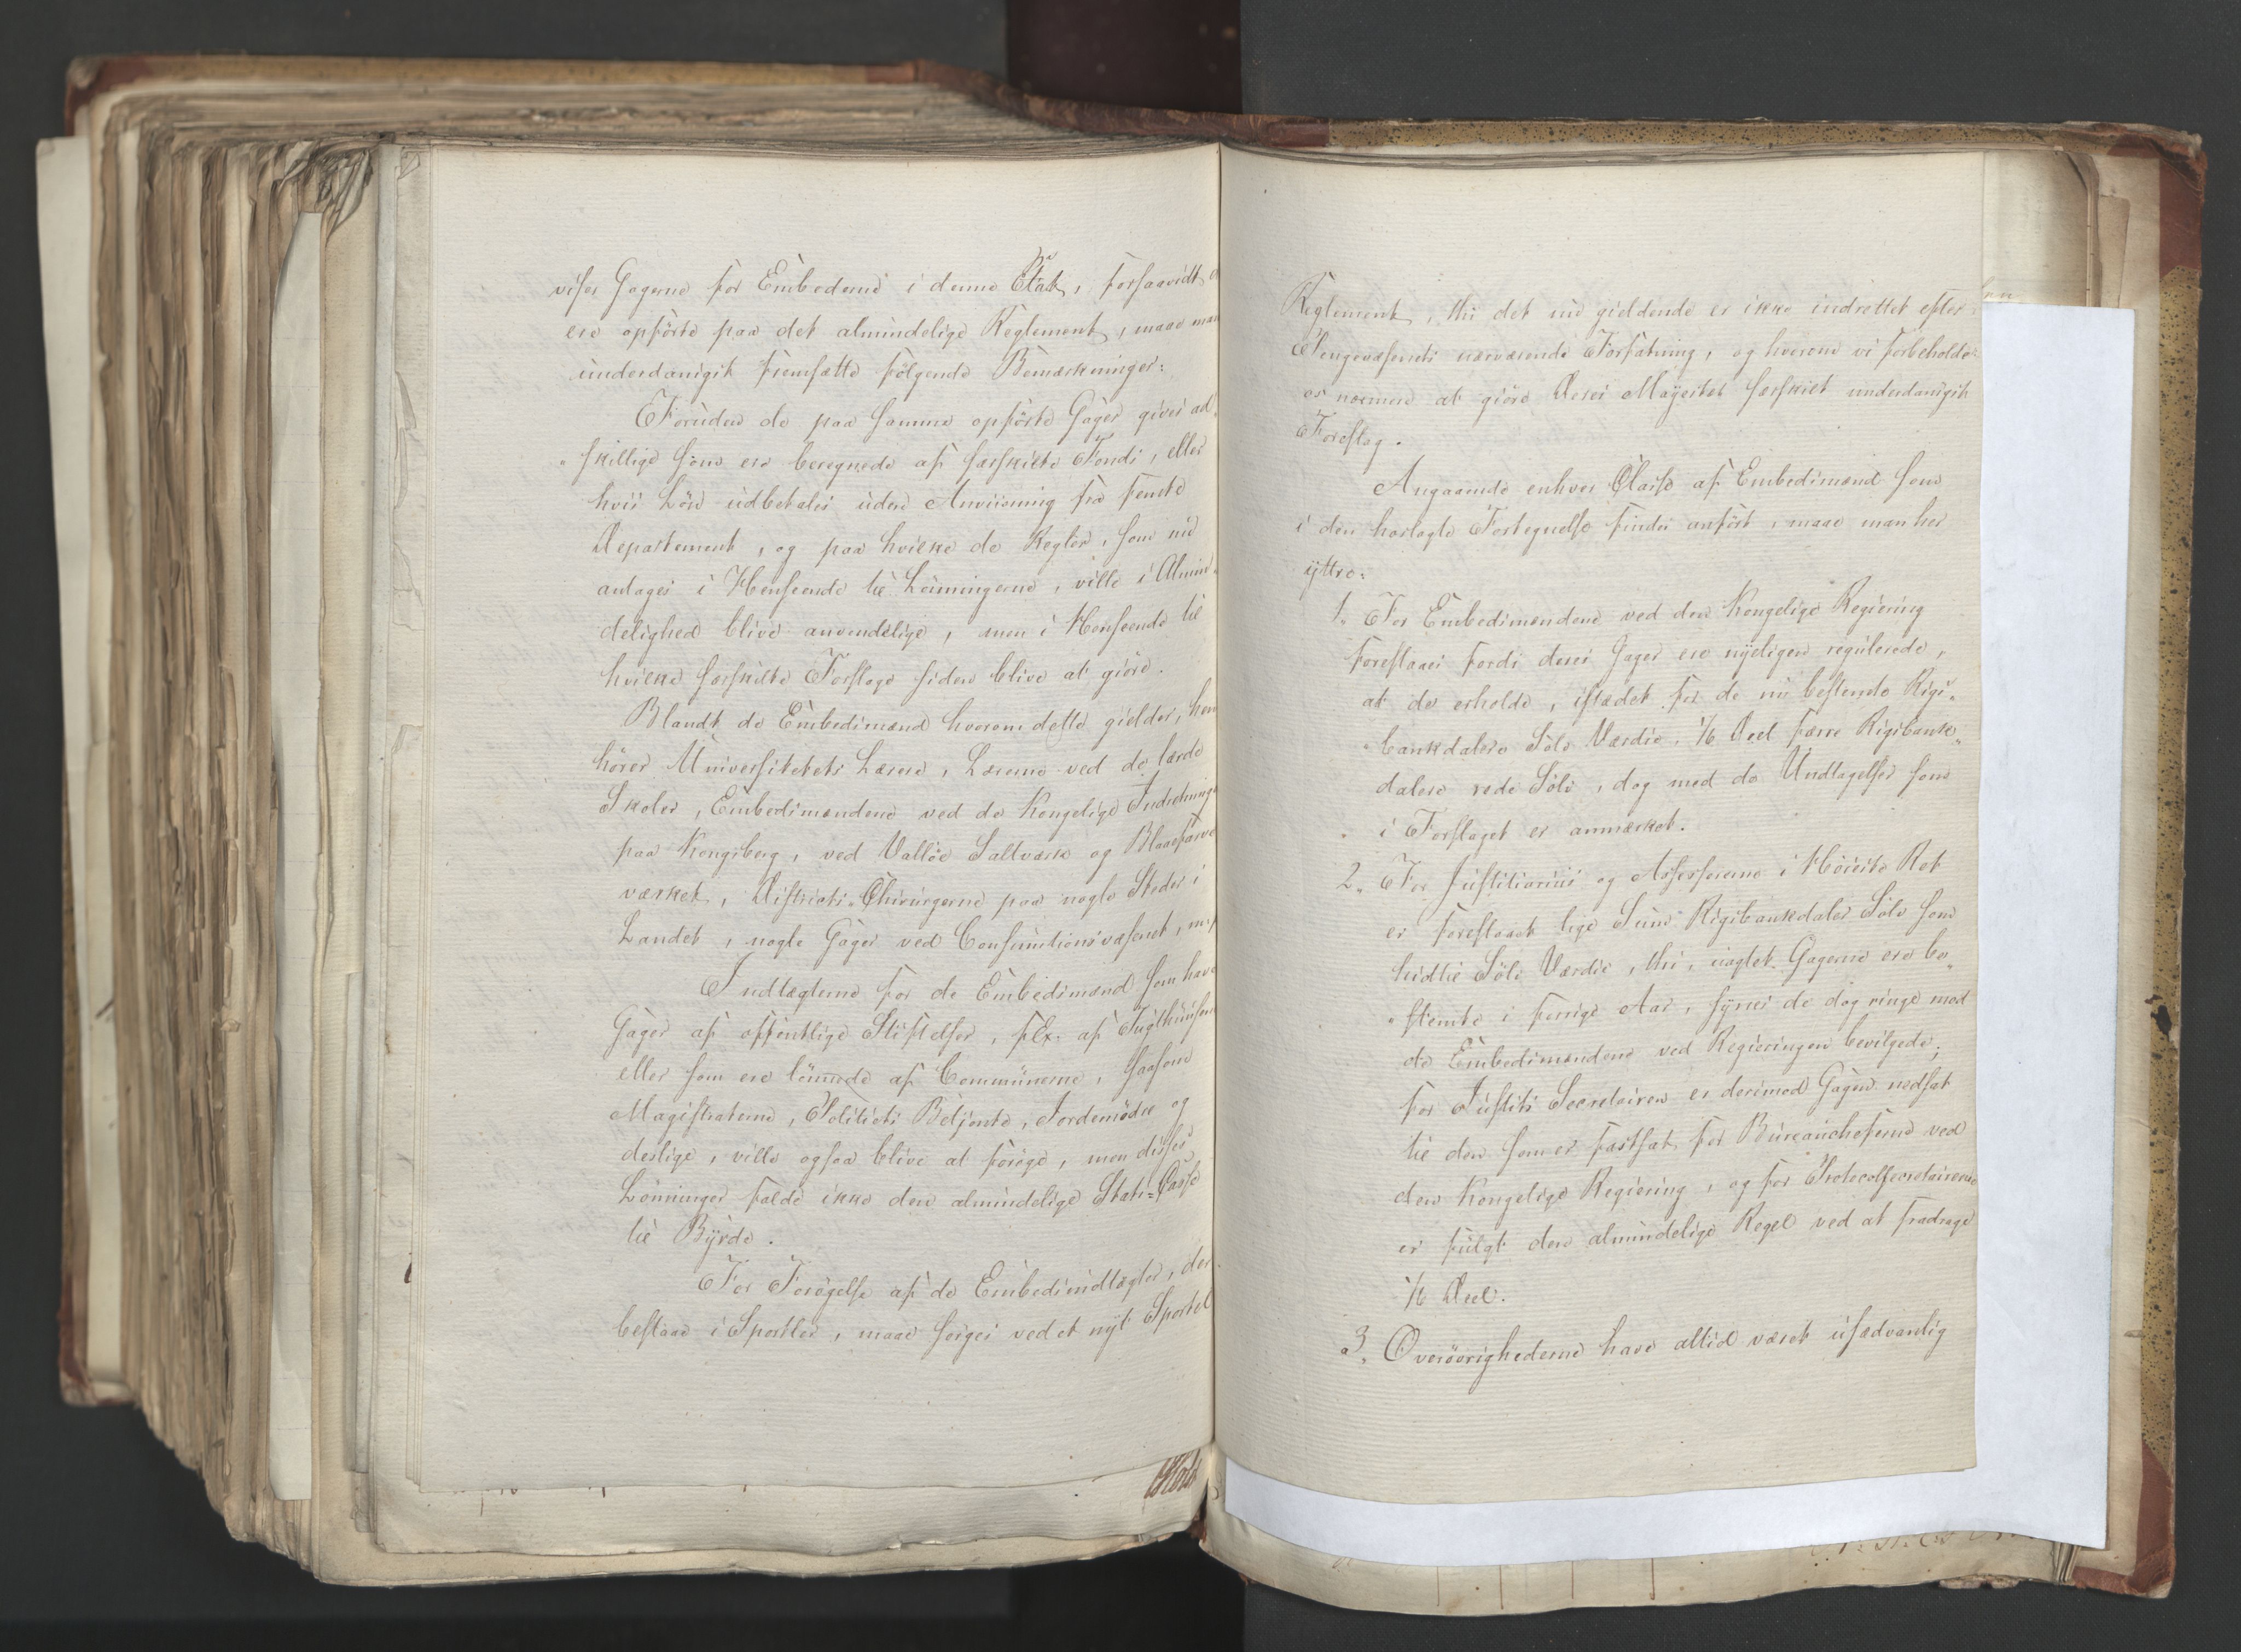 viser Gagerne for Embederne i denne Etat, forsaavidt
ere opförte paa det almindelige Reglement, maae man
underdanigst fremsætte fölgende Bemærkninger:
Foruden de paa samme opförte Gager gives ad„
„skillige som ere beregnede af særskilte Fonds, eller
hvis Lön udbetales uden Anviisning fra femte
Departement, og paa hvilke de Regler, som nu
antages i Henseende til Lönningerne, ville i Almin„
delighed blive anvendelige, men i Henseende til
hvilke særskilte Forslage siden blive at giöre.
Blandt de Embedsmænd hvorom dette gielder, hen
hörer Universitetets Lærere, Lærerne ved de lærde
Skoler, Embedsmændene ved de Kongelige Indretninger
paa Kongsberg, ved Vallöe Saltværk og Blaafarve
værket, Districts-Chirurgerne paa nogle Steder i
Landet, nogle Gager ved Consumtionsvæsenet,
Indtægterne for de Embedsmænd som have
Gager af offentlige Stiftelser, f Ex: af Tugthuusene
eller som ere lönnede af Communerne, saasom
Magistraterne, Politiets Betjente, Jordemödre og
deslige, ville ogsaa blive at foröge, men disses
Lönninger falde ikke den almindelige Stats-Casse
til Byrde.
For Forögelse af de Embedsindtægter, der
bestaae i Sportler, maae sörges ved et nyt Sportel
Reglement, thi det nu gieldende er ikke indrettet efter
Pengevæsenets nærværende Forfatning, og hvorom vi forbeholde
os nærmere at giöre Deres Majestet særskilt underdanigst
Forslag.
Angaaende enhver Classe af Embedsmænd som
i den hoslagte Fortegnelse findes anfört, maae man her
yttre:
1. For Embedsmændene ved den Kongelige Regiering
foreslaaes fordi deres Gager ere nyeligen regulerede,
at de erholde, istædet for de nu bestemte Rigs„
bankdalere Sölv Værdie, 1/6 Deel færre Rigsbank„
dalere rede Sölv, dog med de Undtagelser som
i Forslaget er anmærket.
2. For Justitiarius og Assessorerne i Höieste Ret
er foreslaaet lige Sum Rigsbankdaler Sölv som
hidtil Sölv Værdie, thi, uagtet Gagerne ere be„
„stemte i forrige Aar, synes de dog ringe mod
de Embedsmændene ved Regieringen bevilgede;
for Justits Secretairen er derimod Gagen nedsat
til den som er fastsat for Bureauchefene ved
den Kongelige Regiering, og for Protocolsecretairerne
er fulgt den almindelige Regel ved at fradrage
1/6 Deel.
3. Overövrighederne have altid været usædvanlig